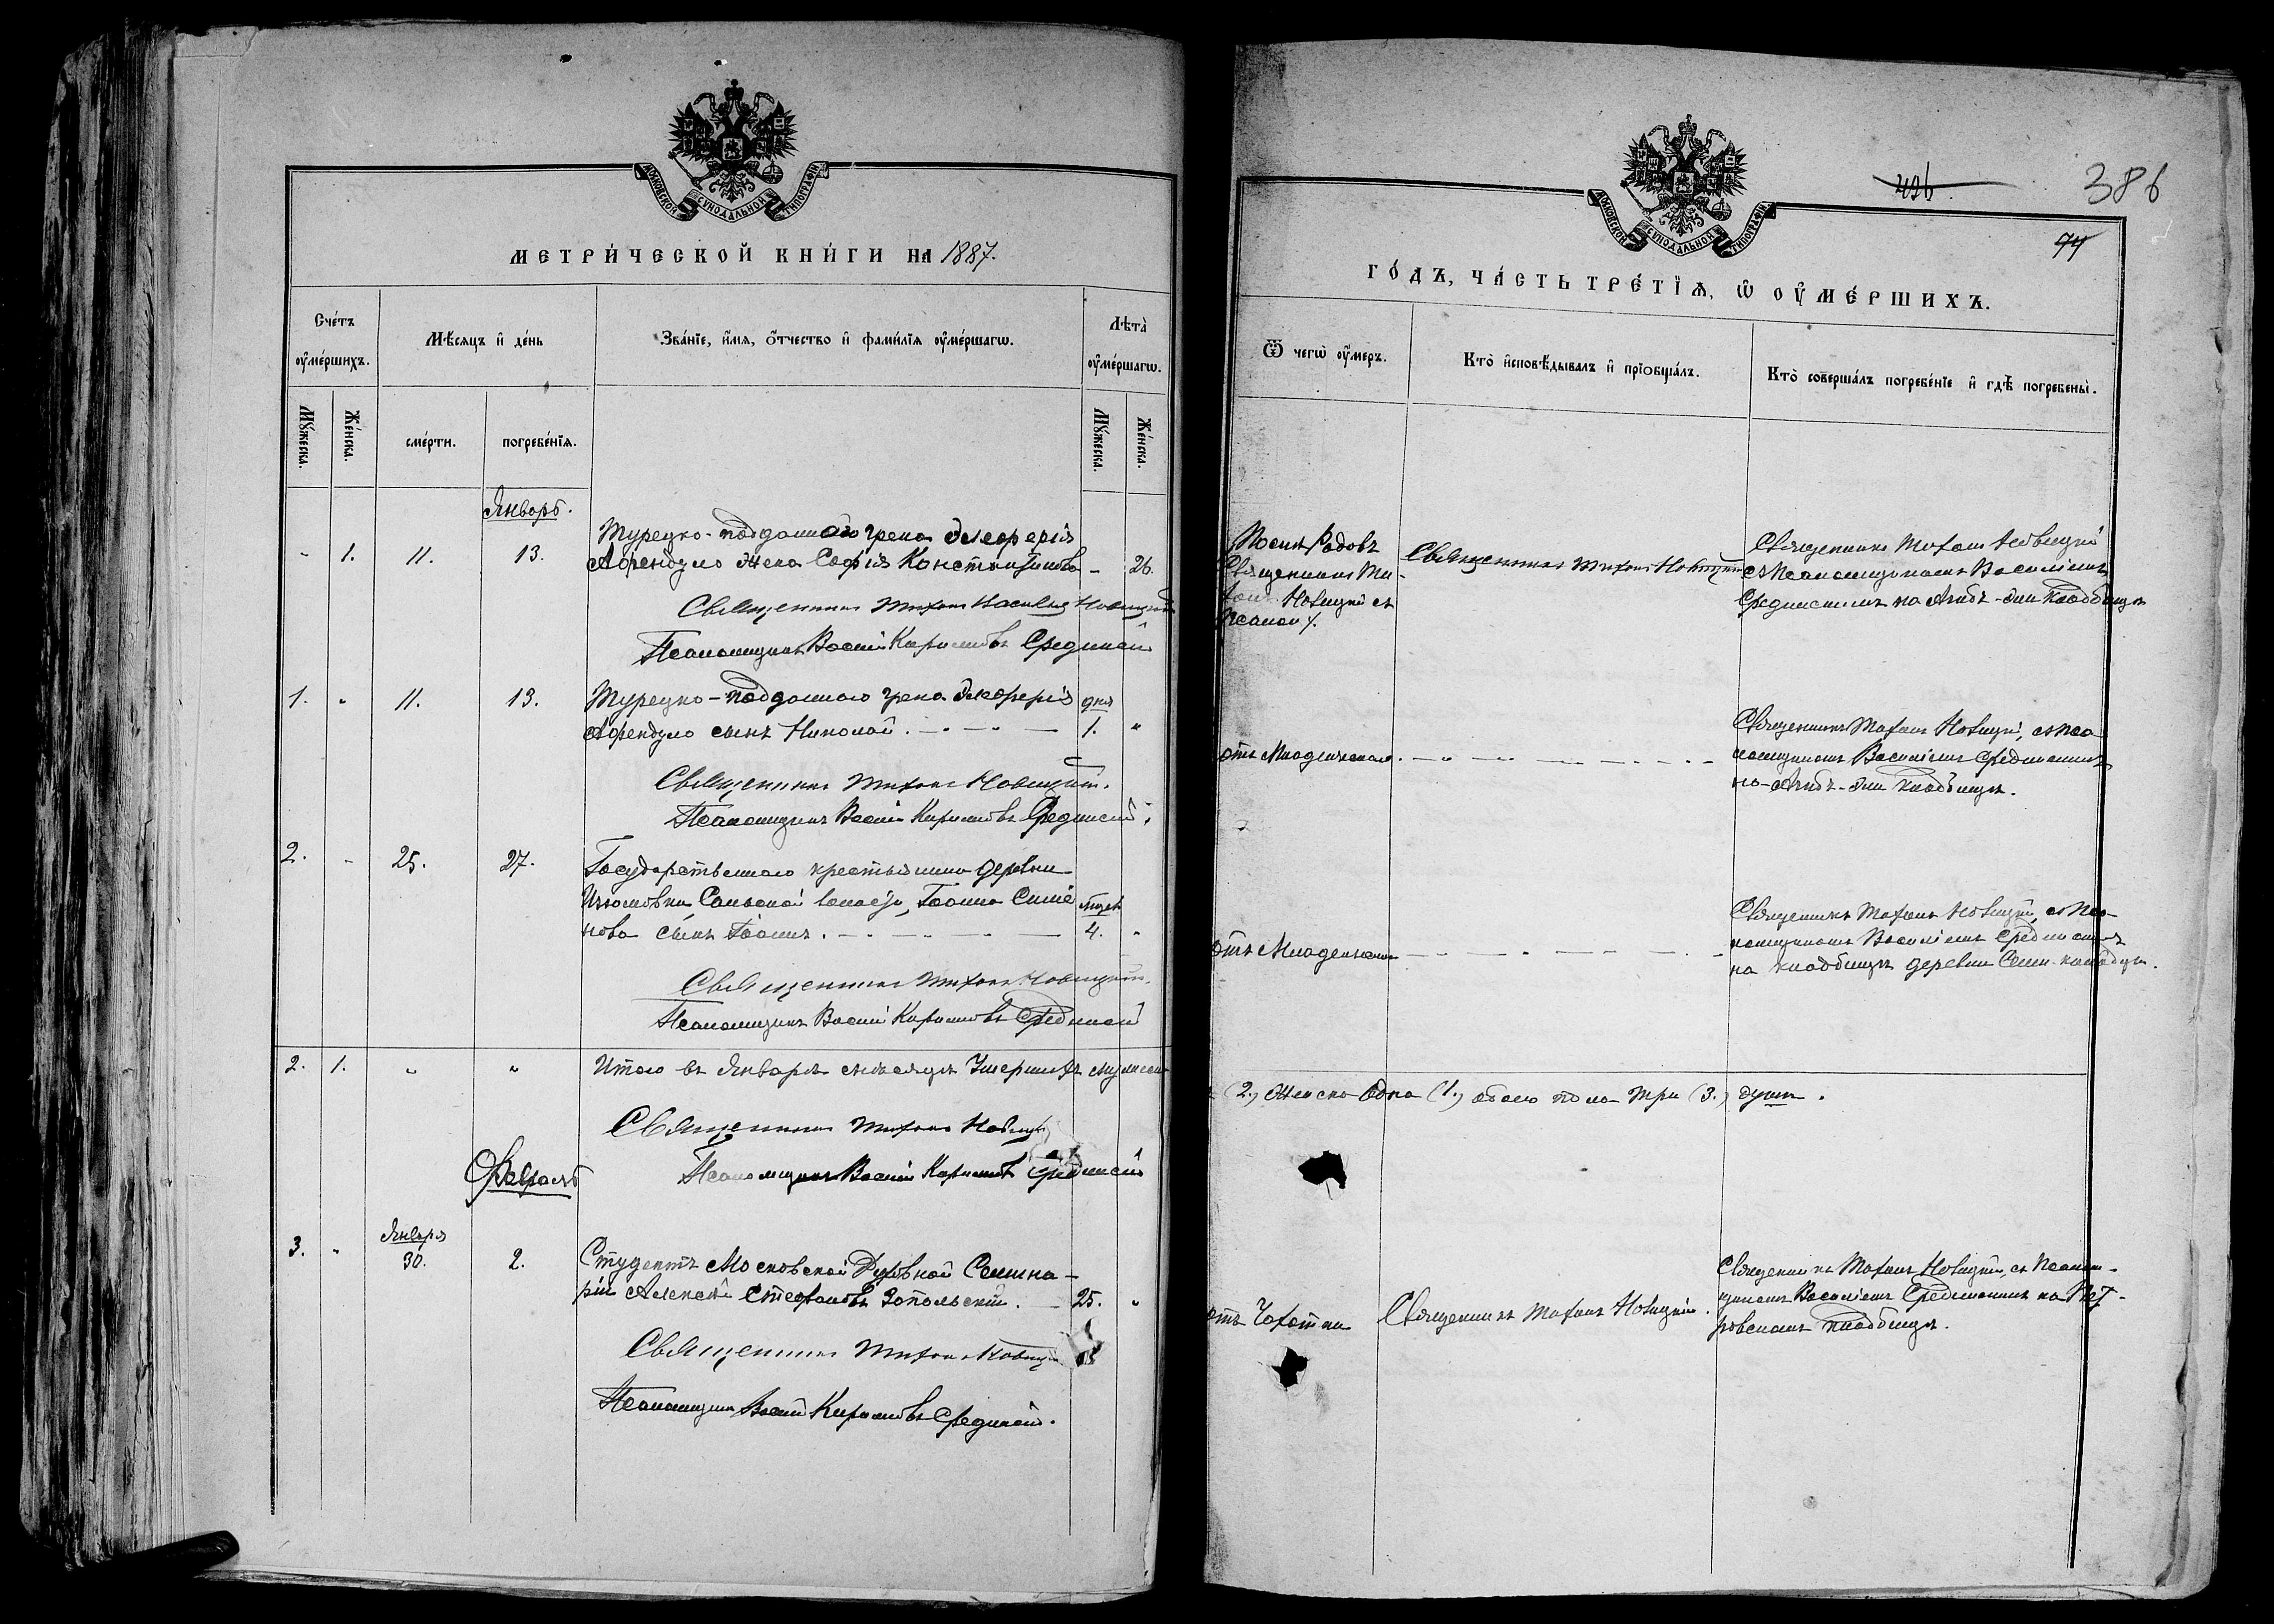 МОСКОВСКОЙ СѴНОДАЛЬНОЙ ТИПОГРАФІИ
МЕТРИ́ЧЕСКОЙ КНИ́ГИ НА 1887.
Сче́тъ ᲂу҆ме́ршихъ.
Мѣ́сяцъ и҆ де́нь
Зва́нїе, и҆́мя, ѻ҆́тчество и҆ фами́лїя ᲂу҆ме́ршагѡ.
Лѣта̀ ᲂу҆ме́ршагѡ.
Мꙋ́жеска.
Же́нска.
сме́рти.
погребе́нїя.
Мꙋ́жеска.
Же́нска.
Январь.
Турецко-подданнаго грека Элеферія
- 1. 11. 13. Афендуло жена Софія Константинова - 26.
Священникъ Тихонъ Новицкій
Псаломщикъ Василій Кириловъ Срединскій
1. " 11. 13. Турецко-подданнаго грека Элеферія дня
Афендуло сынъ Николай. 1. "
Священникъ Тихонъ Новицкій.
Псаломщикъ Василій Кириловъ Срединскій.
2. - 25. 27. Государственнаго крестьянина деревни
Изюмовки, Салынской волости, Іоанна Симо-
нова сынъ Іоаннъ. 4. "
Священникъ Тихонъ Новицкій.
Псаломщикъ Василій Кириловъ Срединскій
2. 1. " " Итого въ Январѣ мѣсяцѣ Умершихъ мужеска
Священникъ Тихонъ Новицкій
Февраль
Псаломщикъ Василій Кириловъ Срединскій
Января
3. " 30. 2. Студентъ Московской Духовной Семина-
ріи Алексѣй Стефановъ Запольскій. - 25. "
Священникъ Тихонъ Новицкій
Псаломщикъ Василій Кириловъ Срединскій.
426
386
94
МОСКОВСКОЙ СѴНОДАЛЬНОЙ ТИПОГРАФІИ
ГО́ДЪ, ЧА́СТЬ ТРЕ́ТЇѦ, Ѡ҆ ОУ҆МЕ́РШИХЪ.
Ѿ чегѡ̀ ᲂу҆́меръ.
Кто̀ и҆сповѣ́дывалъ и҆ прїобща́лъ.
Кто̀ соверша́лъ погребе́нїе и҆ гдѣ̀ погребены̀.
Послѣ Родовъ
Священникъ Ти-
хонъ Новицкій съ
Псалом.
Священникъ Тихонъ Новицкій
Священникъ Тихонъ Новицкій
съ Псаломщикомъ Василіемъ
Срединскимъ на кладбищѣ
отъ Младенческаго.
Священникъ Тихонъ Новицкій, съ Пса-
ломщикомъ Василіемъ Срединскимъ
на кладбищѣ.
отъ Младенческаго
Священникъ Тихонъ Новицкій, съ Пса-
ломщикомъ Василіемъ Срединскимъ
на кладбищѣ деревни
(2.) Женска Одна (1.) обоего пола три (3.) души.
отъ Чахотки
Священникъ Тихонъ Новицкій.
Священникъ Тихонъ Новицкій, съ Псалом-
щикомъ Василіемъ Срединскимъ на
кладбищѣ.